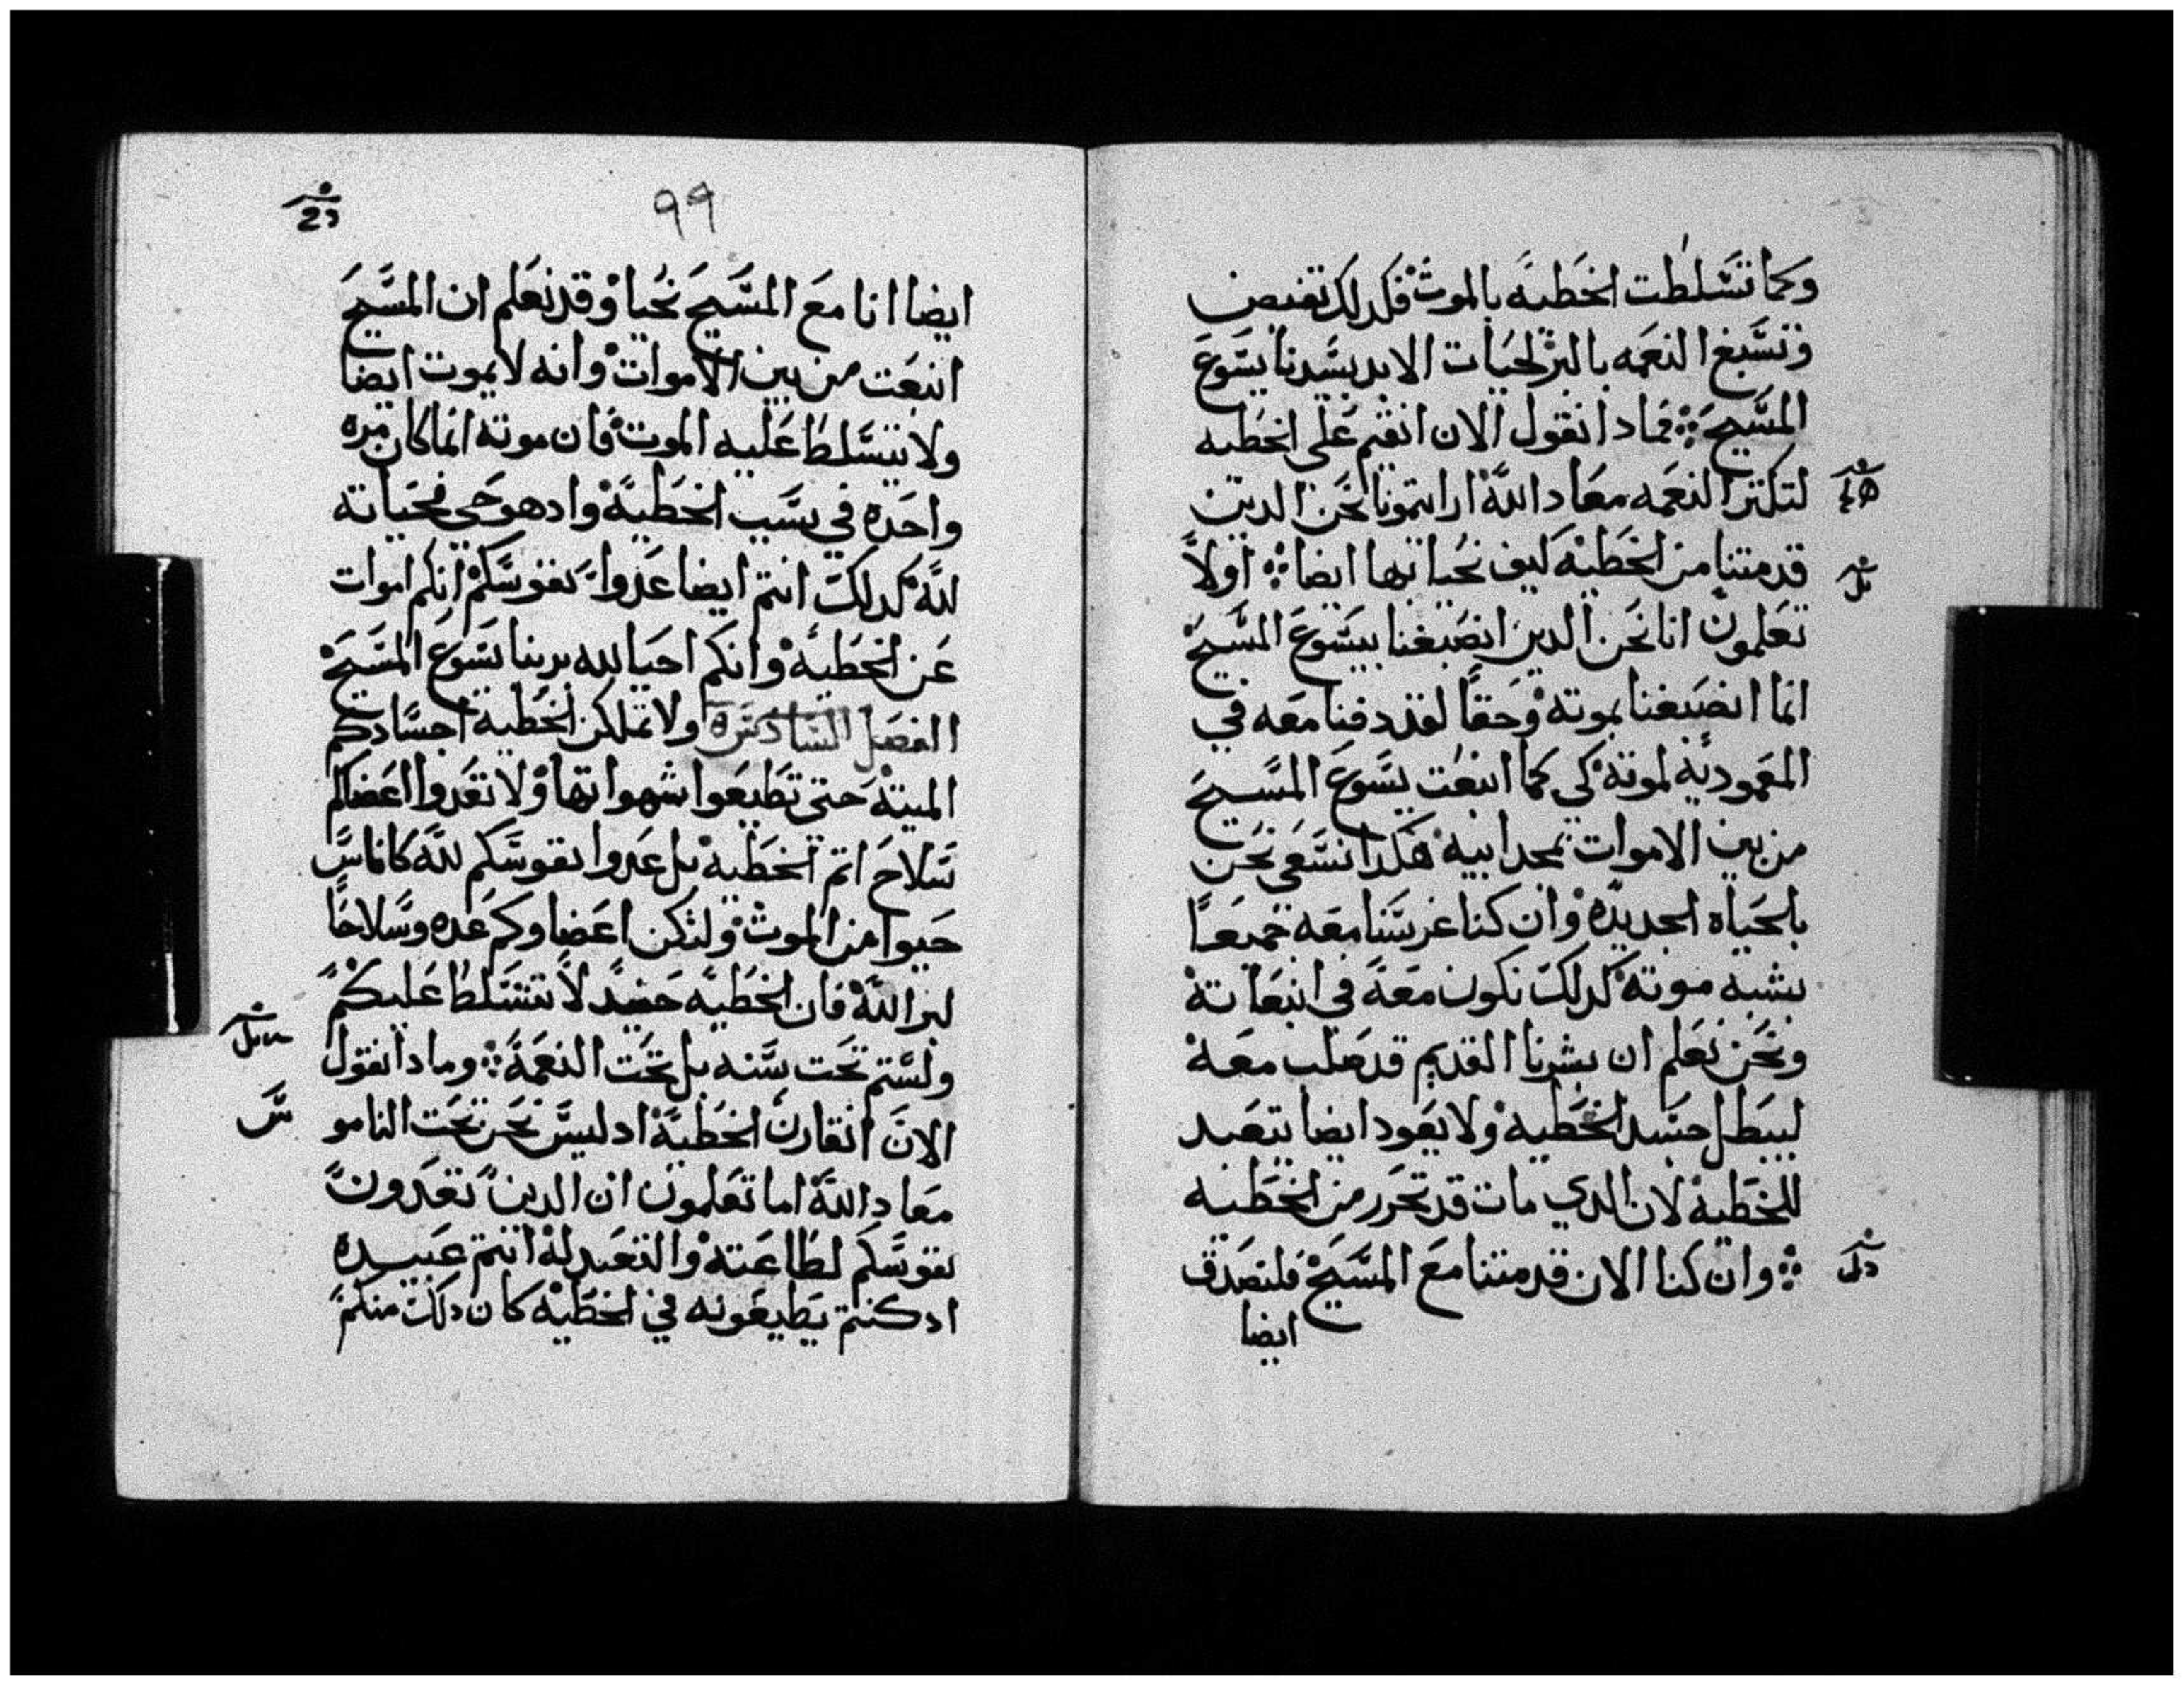 وكما تسلطت الخطيه بالموت فكدلك تفيض
وتسبغ النعمه بالبر لحيات الابد بسيدنا يسوع
المسيح فمادا نقول الان انقيم على الخطيه
لتكتر النعمه معاد الله ارايتمونا نحن الدين
قد متنا من الخطيه كيف نحيا بها ايضا اولا
تعلمون انا نحن الدين انصبغنا بيسوع المسيح
انما انصبغنا بموته وحقا لقد دفنا معه في
المعموديه لموته كي كما انبعت يسوع المسيح
من بين الاموات بمجد ابيه هكدا نسعي نحن
بالحياه الجديده وان كنا غرسنا معه جميعا
بشبه موته كدلك نكون معه في انبعاته
ونحن نعلم ان بشرنا القديم قد صلب معه
ليبطل جسد الخطيه ولا يعود ايضا يتعبد
للخطيه لان الدي مات قد تحرر من الخطيه
وان كنا الان قد متنا مع المسيح فلنصدق
ايضا
٩٩
ايضا انا مع المسيح نحيا وقد نعلم ان المسيح
انبعت من بين الاموات وانه لا يموت ايضا
ولا يتسلط عليه الموت فان موته انما كان مره
واحده في سبب الخطيه واد هو حي فحياته
لله كدلك انتم ايضا عدوا نفوسكم انكم اموات
عن الخطيه وانكم احيا لله بربنا يسوع المسيح
الفصل السادس ولا تملكن الخطيه اجسادكم
الميته حتى تطيعوا شهواتها ولا تعدوا اعضاكم
سلاح اتم الخطيه بل عدوا نفوسكم لله كاناس
حيوا من الموت ولتكن اعضاوكم عده وسلاحا
لبر الله فان الخطيه حينيد لا تتسلط عليكم
ولستم تحت سنه بل تحت النعمه ومادا نقول
الان انقارن الخطيه اد ليس نحن تحت النامو
س
معاد الله اما تعلمون ان الدين تعدون
نفوسكم لطاعته والتعبد له انتم عبيده
اد كنتم تطيعونه في الخطيه كان دلك منكم